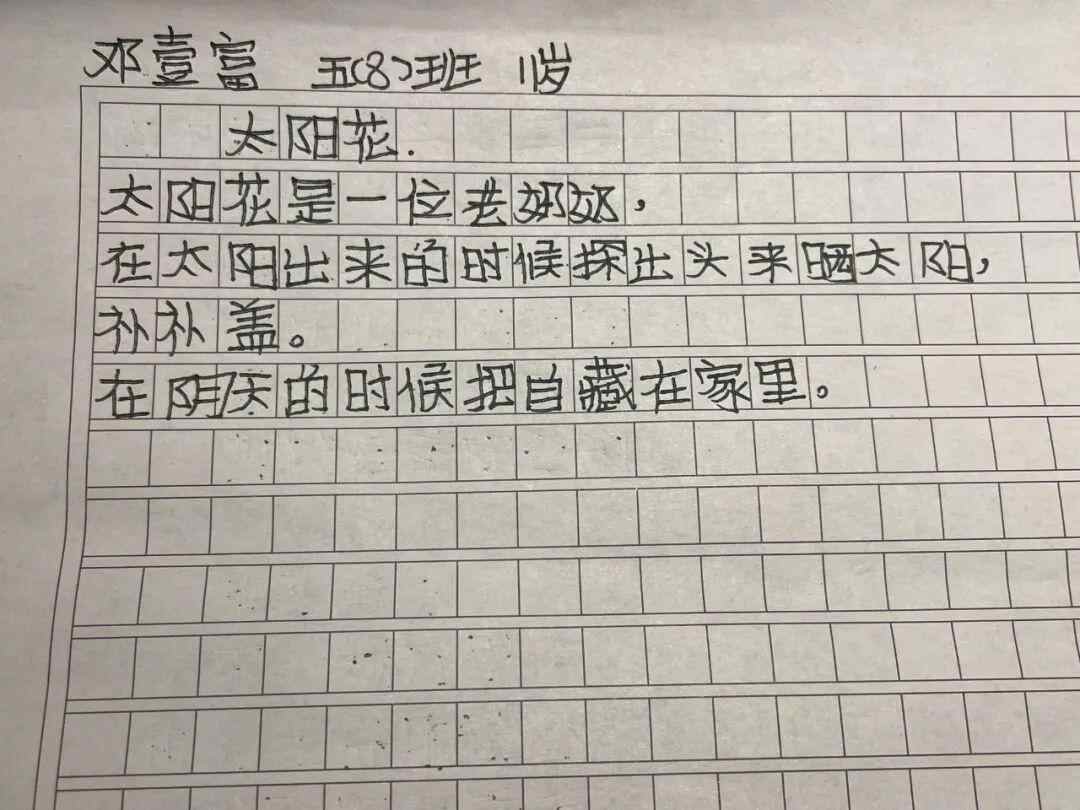 邓壹富 五(8)班 11岁
太阳花.
太阳花是一位老奶奶,
在太阳出来的时候探出头来晒太阳,
补补盖。
在阴天的时候把自藏在家里。